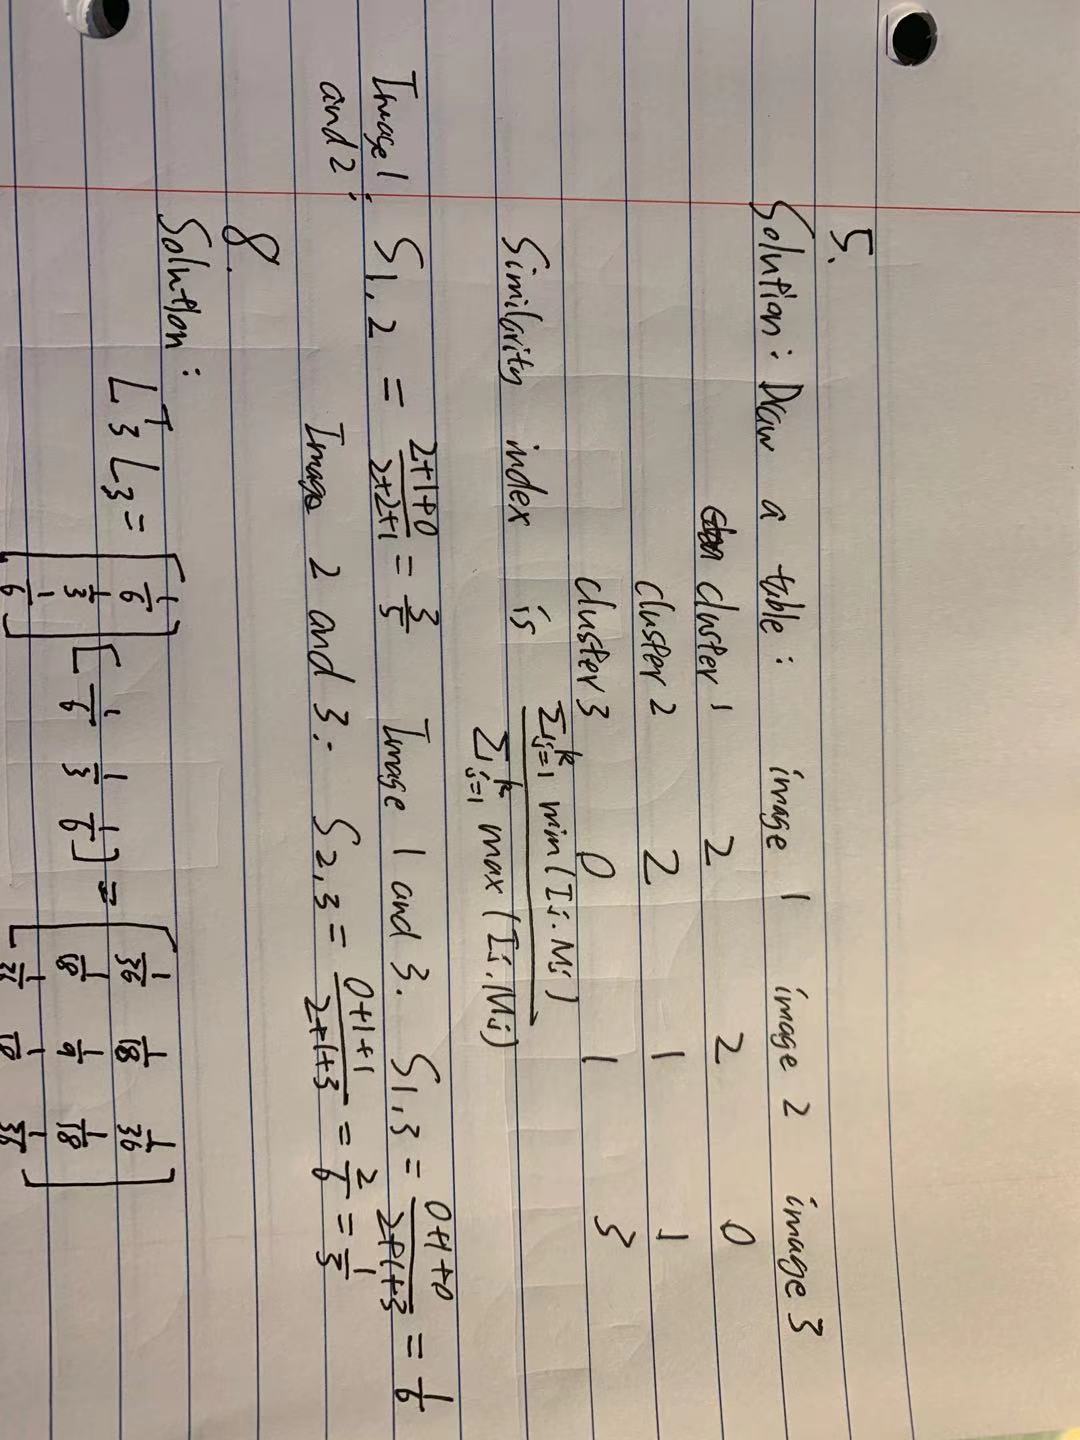 5.
Solution: Draw a table: image 1 image 2 image 3
cluster 1 2 2 0
cluster 2 2 1 1
cluster 3 0 1 3
Similarity index is \frac{\sum_{j=1}^{k} min(Ij.Mj)}{\sum_{j=1}^{k} max(Ij.Mj)}
Image 1 and 2: S1,2 = \frac{2+1+0}{2+2+1} = \frac{3}{5} Image 1 and 3. S1,3 = \frac{0+1+0}{2+1+3} = \frac{1}{6}
Image 2 and 3: S2,3 = \frac{0+1+1}{2+1+3} = \frac{2}{6} = \frac{1}{3}
8.
Solution:
L_3^T L_3 = \begin{bmatrix} \frac{1}{6} \\ \frac{1}{3} \\ \frac{1}{6} \end{bmatrix} [\frac{1}{6} \frac{1}{3} \frac{1}{6}] = \begin{bmatrix} \frac{1}{36} & \frac{1}{18} & \frac{1}{36} \\ \frac{1}{18} & \frac{1}{9} & \frac{1}{18} \\ \frac{1}{36} & \frac{1}{18} & \frac{1}{36} \end{bmatrix}